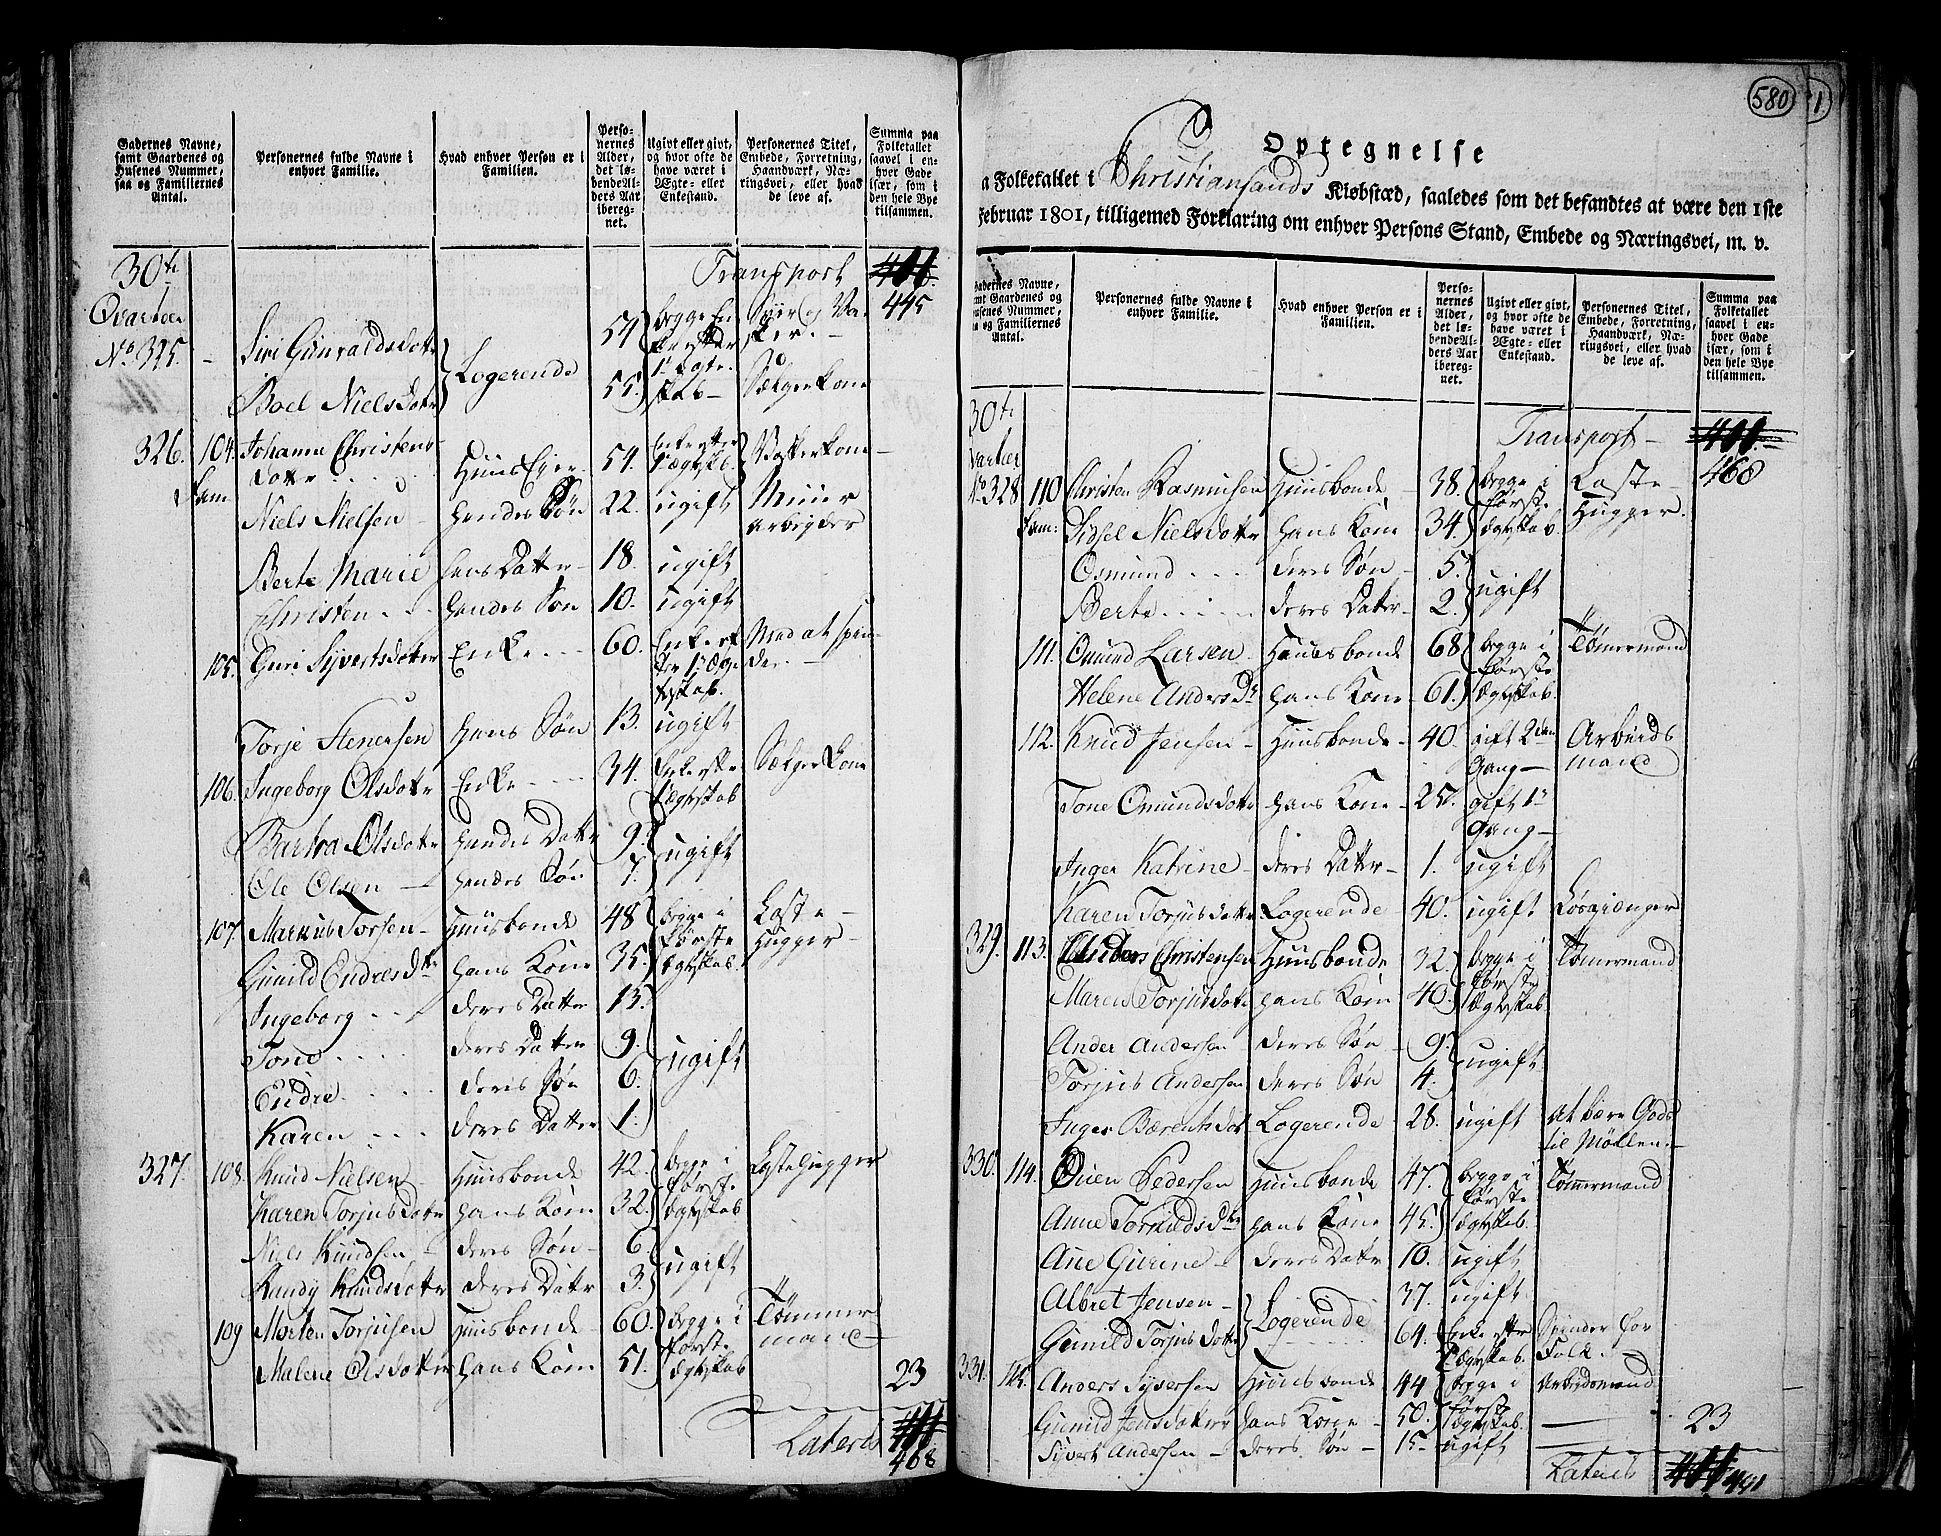 Gadernes Navne, samt Gaardenes og Husenes Nummer, saa og Familiernes Antal.
Personernes fulde Navne i enhver Familie.
Hvad enhver Person er i Familien.
Personernes Alder, det løbende Alders Aar iberegnet.
Ugivt eller givt, og hvor ofte de have været i Ægte- eller Enkestand.
Personernes Titel, Embede, Forretning, Haandværk, Næringsvei, eller hvad de leve af.
Summa paa Folketallet saavel i enhver Gade især, som i den hele Bye tilsammen.
30te Qvarteer Transport 445
No 325 Siri Gunvaldsdotr Logerende 54 begge Enker efter 1ste Ægteskab Syer og Vasker
Boel Nielsdotr 55 Sælgerkone
326. 104. Fam Johanne Christensdottr Huus Eger 54. Enke efter 1 Ægteskab. Vaskerkone
Niels Nielsen hendes Søn 22. ugift Muur arbeyder
Berte Marie hends Datter 18. ugift
Christen hendes Søn 10. ugift
105. Guri Syvertsdotter Enke 60. Enke efter 1ste Ægteskab. Med at spinder.
Torje Stenersen hans Søn 13. ugift
106. Ingeborg Olsdotr Enke 34. Enke efter 1 Ægteskab Sælger Kone
Barbra Olsdotr hendes Dattr 9. ugift
Ole Olsen hendes Søn 7.
107. Marcus Torsen Huusbonde 48 begge i første Ægteskab. Laste Hugger
Gunild Endresdtr hans Kone 35.
Ingeborg deres Dattr 15. ugift
Tone deres Datter 9.
Endre deres Søn 6.
Karen deres Datter 1.
327. 108. Knud Nielsen Huusbonde 42. begge i første Ægteskab Lastehugger
Karen Torjusdotr hans Kone 32.
Niels Knudsen deres Søn 6. ugift
Randy Knudsdottr deres Datr 3.
109 Morten Torjusen Huusbonde 60. begge i første Ægteskab Tømmermand
Malene Olsdotter hans Kone 51.
23
Lateris 468
580
1
Optegnelse
a Folketallet i Christiansands Kiøbstæd, saaledes som det befandtes at være den 1ste
Februar 1801, tilligemed Forklaring om enhver Persons Stand, Embede og Næringsvei, m. v.
Gadernes Navne, samt Gaardenes og Husenes Nummer, saa og Familiernes Antal.
Personernes fulde Navne i enhver Familie.
Hvad enhver Person er i Familien.
Personernes Alder, det løbende Alders Aar iberegnet.
Ugivt eller givt, og hvor ofte de have været i Ægte- eller Enkestand.
Personernes Titel, Embede, Forretning, Haandværk, Næringsvei, eller hvad de leve af.
Summa paa Folketallet saavel i enhver Gade især, som i den hele Bye tilsammen.
30te Transport 468
No 328 110 Fam: Christen Rasmusen Huusbonde 38. begge i første Ægteskab. Laste Hugger.
Sidsel Nielsdotter hans Kone 34.
Osmund deres Søn 5. ugift
Berte deres Dater 2.
111. Omund Larsen Huusbonde 68 begge i første Ægteskab. Tømermand
Helene Andersdr hans Kone 61.
112. Knud Jensen Huusbonde 40. gift 2den Gang Arbeidsmand
Tone Omundsdotr hans Kone 25. gift 1ste Gang
Inger Katrine deres Datter 1. ugift
Karen Torjusdottr Logerende 40. ugift Løsgienger
329. 113. Anders Christensen Huusbonde 32. begge i første Ægteskab Tømermand
Maren Torjusdotr hans Kone 40.
Ander Andersen deres Søn 9. ugift
Torjus Andersen deres Søn 4.
Inger Bærentsdot Logerende 28. ugift at bære Gods til Møllen
330. 114. Ouen Pedersen Huusbonde 47. begge i første Ægteskab. Tømermand
Anne hans Kone 45.
Ane Gurine deres Datr 10. ugift
Albret Jensen Logerende 37. ugift
Gunild Torjusdottr 64. Enke efter 1 Ægteskab. Spinder for Folk.
331. 115. Anders Syversen Huusbonde 44 begge i første Ægteskab. Arbeydsmand
Gunild Jensdotter hans Kone 50.
Syvert Andersen deres Søn 15 ugift
23
Lateris 491